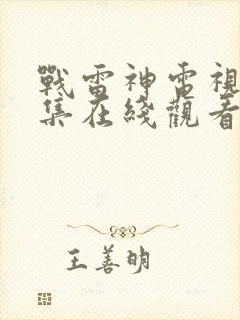 戰雷神電視
集在綫觀看
王善明